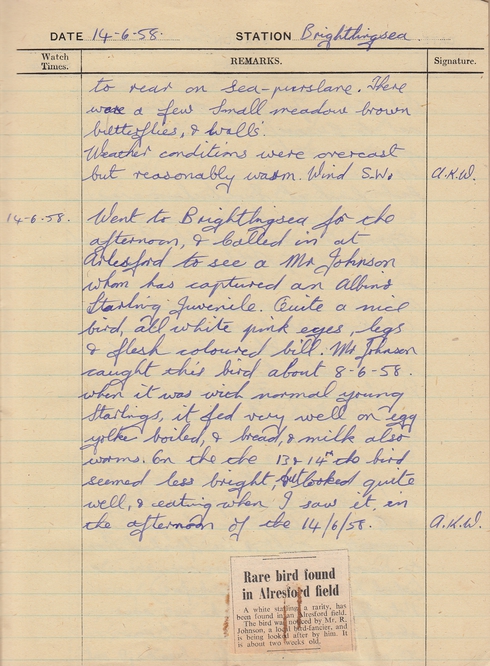 DATE 14-6-58. STATION Brightlingsea
Watch Times. REMARKS. Signature.
to rear on sea-purslane. There
were a few small meadow brown
butterflies, & walls.
Weather conditions were overcast
but reasonably warm. Wind S.W. A.K.W.
14-6-58. Went to Brightlingsea for the
afternoon, & called in at
Arlesford to see a Mr Johnson
whom has captured an Albino
Starling Juvenile. Quite a nice
bird, all white pink eyes, legs
& flesh coloured bill. Mr Johnson
caught this bird about 8-6-58.
when it was with normal young
Starlings, it fed very well on egg
yolke boiled, & bread, & milk also
worms. On the the 13 & 14th the bird
seemed less bright, but looked quite
well, & eating when I saw it, in
the afternoon of the 14/6/58. A.K.W.
Rare bird found
in Alresford field
A white starling, a rarity, has
been found in an Alresford field.
The bird was noticed by Mr. R.
Johnson, a local bird-fancier, and
is being looked after by him. It
is about two weeks old.